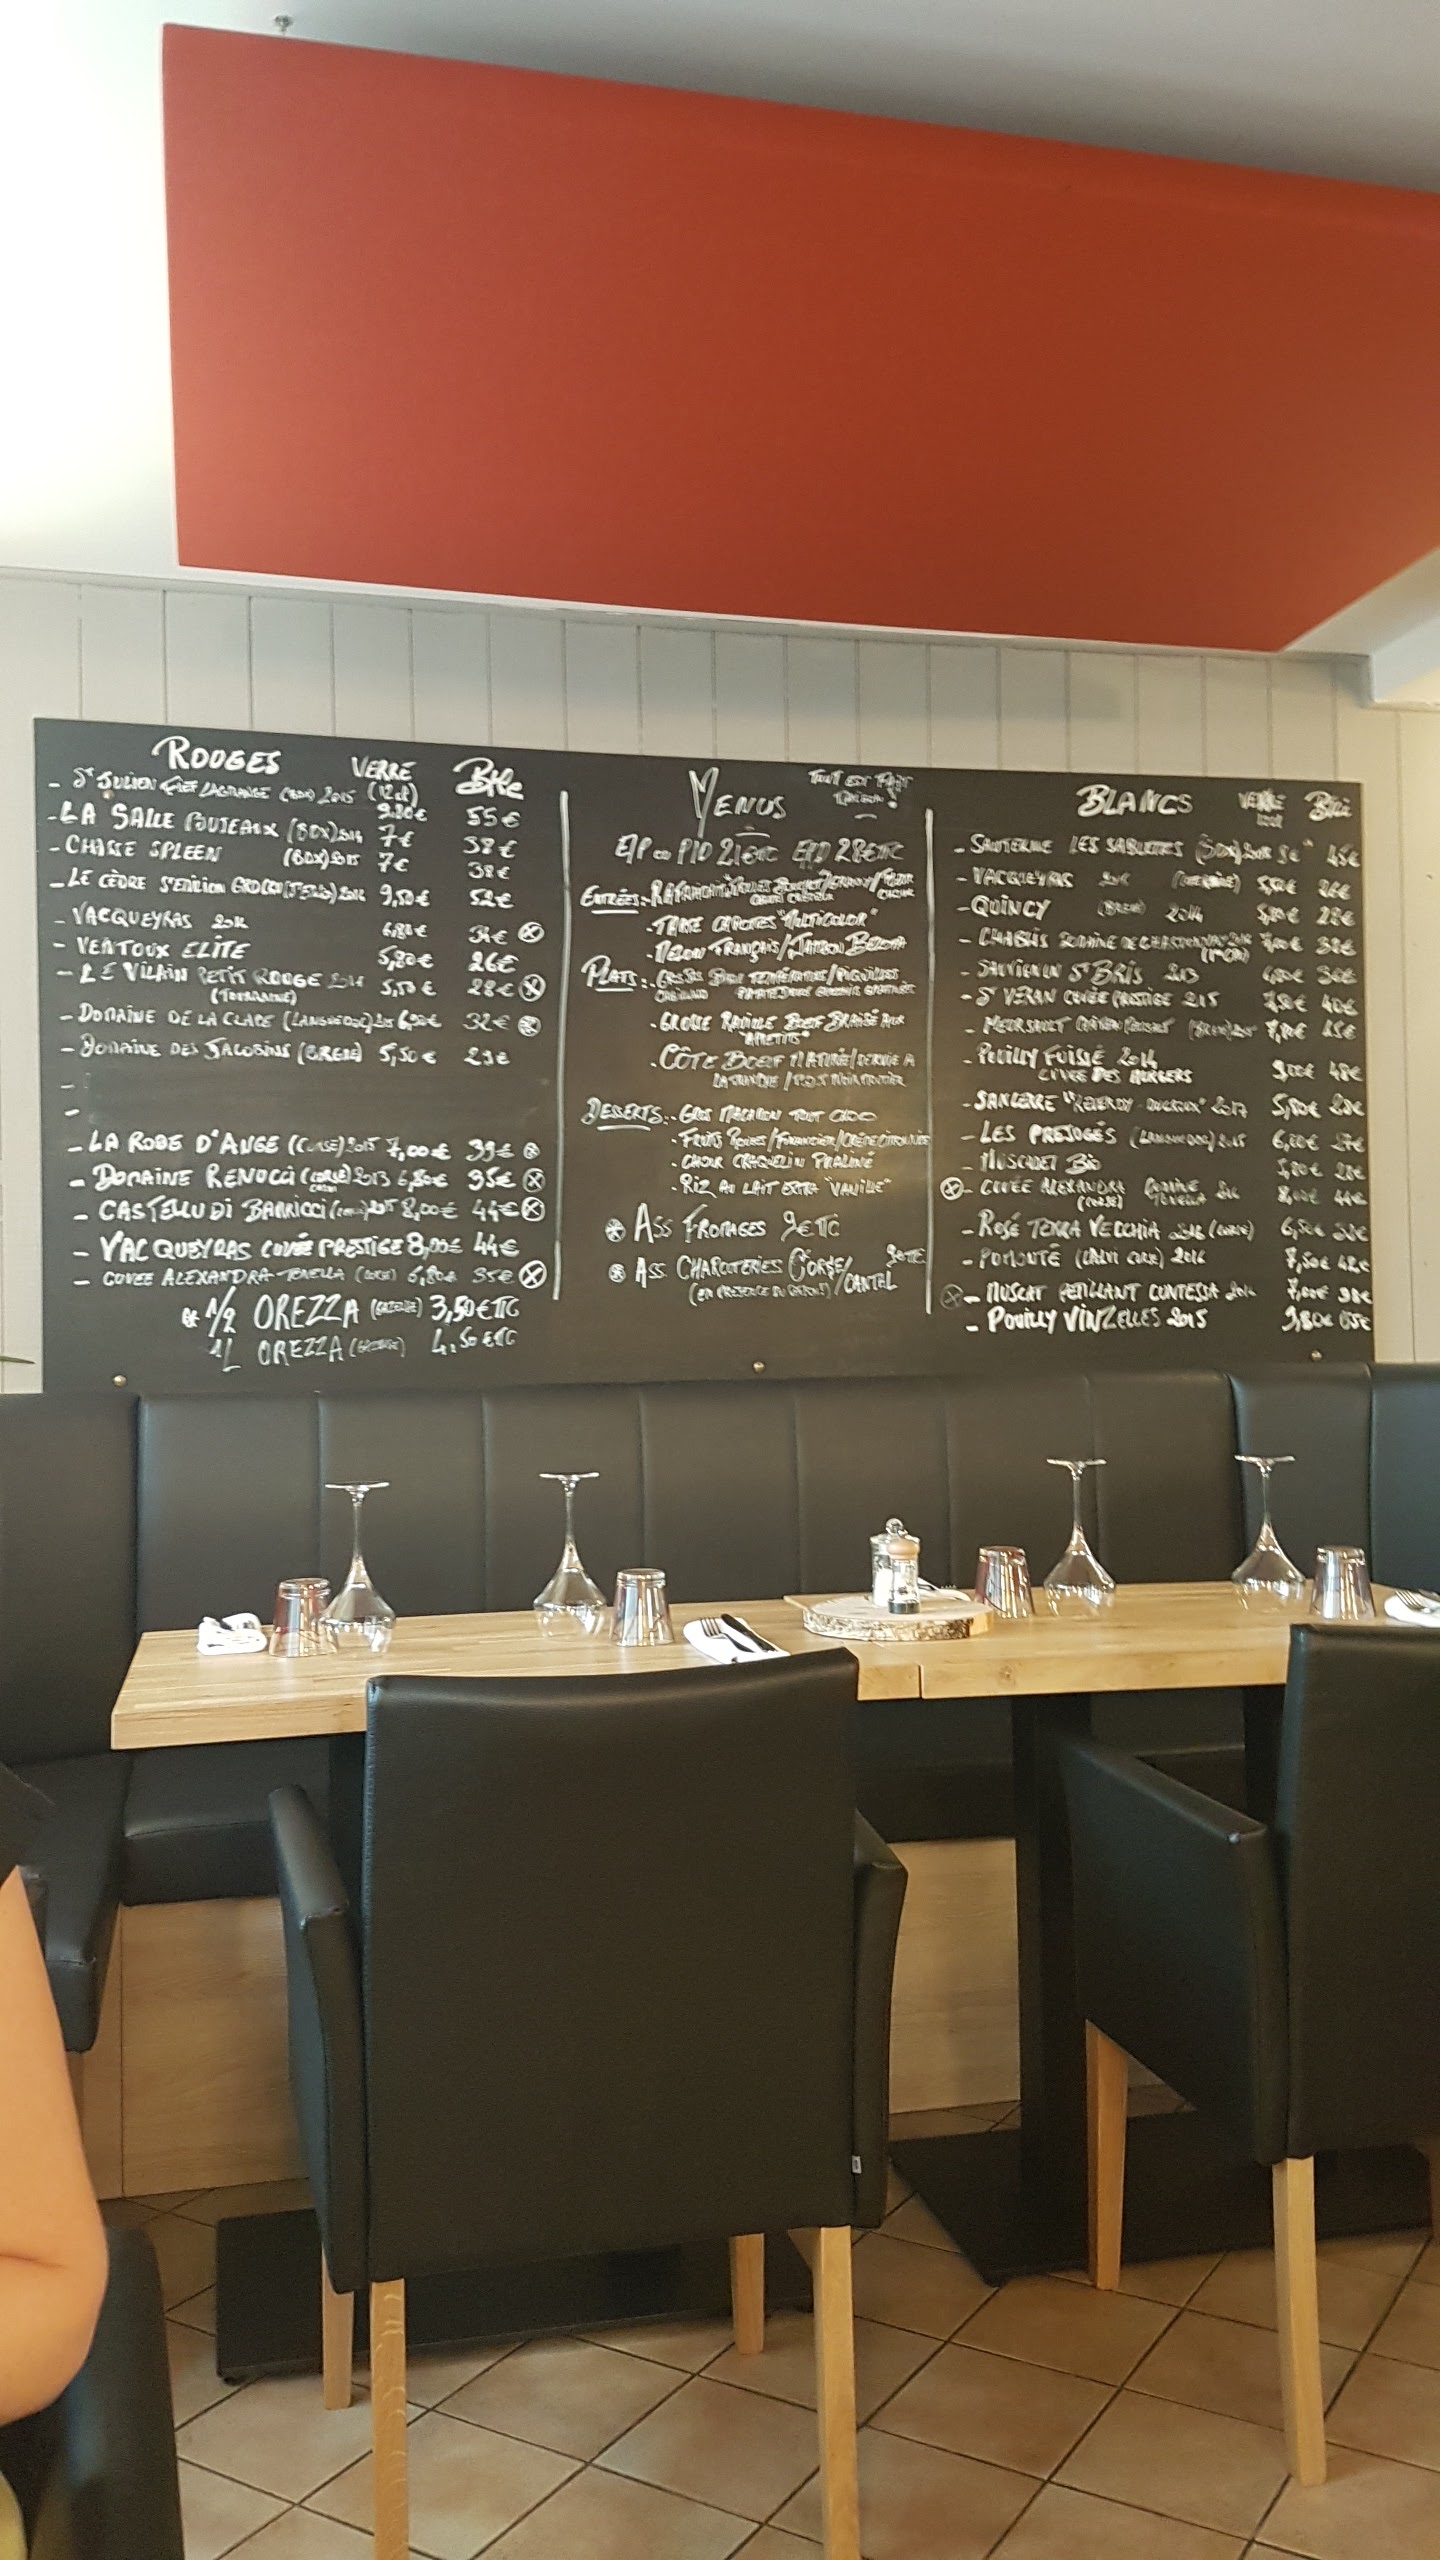 ROUGES VERRE Btle
- St JULIEN FIEF LAGRANGE (BDX) 2015 (12cl) 9.80€ 55€
- LA SALLE POUJEAUX (BDX) 2014 7€ 38€
- CHASSE SPLEEN (BDX) 2015 7€ 38€
- LE CÈDRE St EMILION 2014 9,50€ 52€
- VACQUEYRAS 2014 6,80€ 34€
- VENTOUX ELITE 5,80€ 26€
- LE VILAIN PETIT ROUGE 2016 5,50€ 28€
(TOURAINE)
- DOMAINE DE LA CLAPE (LANGUEDOC) 2015 6,90€ 32€
- DOMAINE DES JACOBINS (BREM) 5,50€ 23€
-
-
- LA ROBE D'ANGE (CORSE) 2015 7,00€ 39€
- DOMAINE RENUCCI (CORSE) 2013 6,80€ 35€
- CASTELLU DI BARRICCI 2015 8,00€ 44€
- VACQUEYRAS CUVÉE PRESTIGE 8,00€ 44€
- CUVEE ALEXANDRA TENELLA (CORSE) 6,80€ 35€
1/2 OREZZA (GAZEUSE) 3,50€TTC
1L OREZZA (GAZEUSE) 4,50€TTC
MENUS TOUT EST FAIT
MAISON!
E/P ou P/D 21€TTC E/P/D 28€TTC
ENTRÉES:
- TARTE CAROTTES "MULTICOLOR"
- MELON FRANÇAIS/JAMBON BELOTA
PLATS: - GROS
CABILLAUD
- GROSSE RAVIOLE BOEUF BRAISÉ AUX
"APÉTITS"
- CÔTE BOEUF MATURÉE/SERVIE A
LA
DESSERTS: - GROS MACARON TOUT CHOC
- FRUITS ROUGES/FINANCIER/CRÈME CITRONNÉE
- CHOUX CRAQUELIN PRALINÉ
- RIZ AU LAIT EXTRA "VANILLE"
ASS FROMAGES 9€TTC
ASS CHARCUTERIES CORSE/CANTAL 9€TTC
BLANCS VERRE Btle
- SAUTERNE LES SABLETTES (BDX) 45€
- VACQUEYRAS 26€
- QUINCY 2014 5,80€ 28€
- CHABLIS DOMAINE DE 38€
- SAUVIGNON St BRIS 2013 30€
- St VERAN CUVÉE PRESTIGE 2015 7,50€ 40€
- MEURSAULT 45€
- POUILLY FUISSÉ 2014 9,00€ 48€
CUVÉE DES MURGERS
- SANCERRE "REVERDY-DUCROUX" 2017 5,80€ 28€
- LES PREJUGÉS (LANGUEDOC) 2015 27€
- MUSCADET BIO 5,80€ 28€
- CUVÉE ALEXANDRA DOMAINE TENELLA 8,00€ 44€
(CORSE)
- ROSÉ TERRA VECCHIA 2016 (CORSE) 6,50€
- POMONTE (CALVI CORSE) 2016 7,50€ 42€
- MUSCAT PETILLANT CONTESSA 2016 7,00€ 38€
- POUILLY VINZELLES 2015 9,80€ 55€